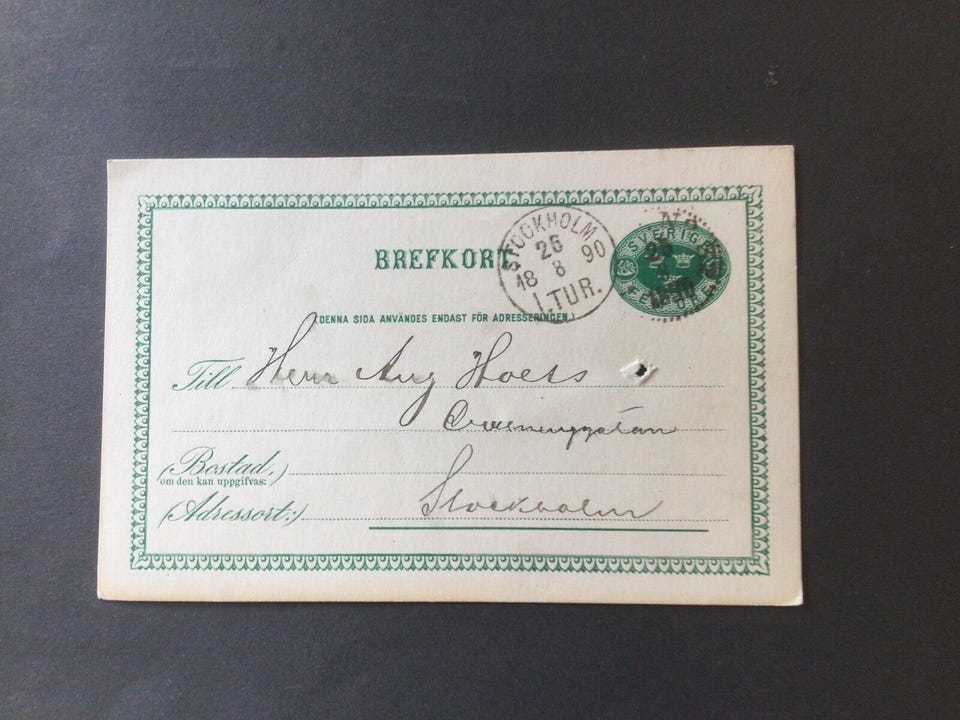 BREFKORT.
STOCKHOLM
26
18 8 90
1.TUR.
SVERIGE
FEM ÖRE
(DENNA SIDA ANVÄNDES ENDAST FÖR ADRESSERINGEN.)
Till Herr Aug Hoets
(Bostad,)
om den kan uppgifvas:
(Adressort:) Stockholm